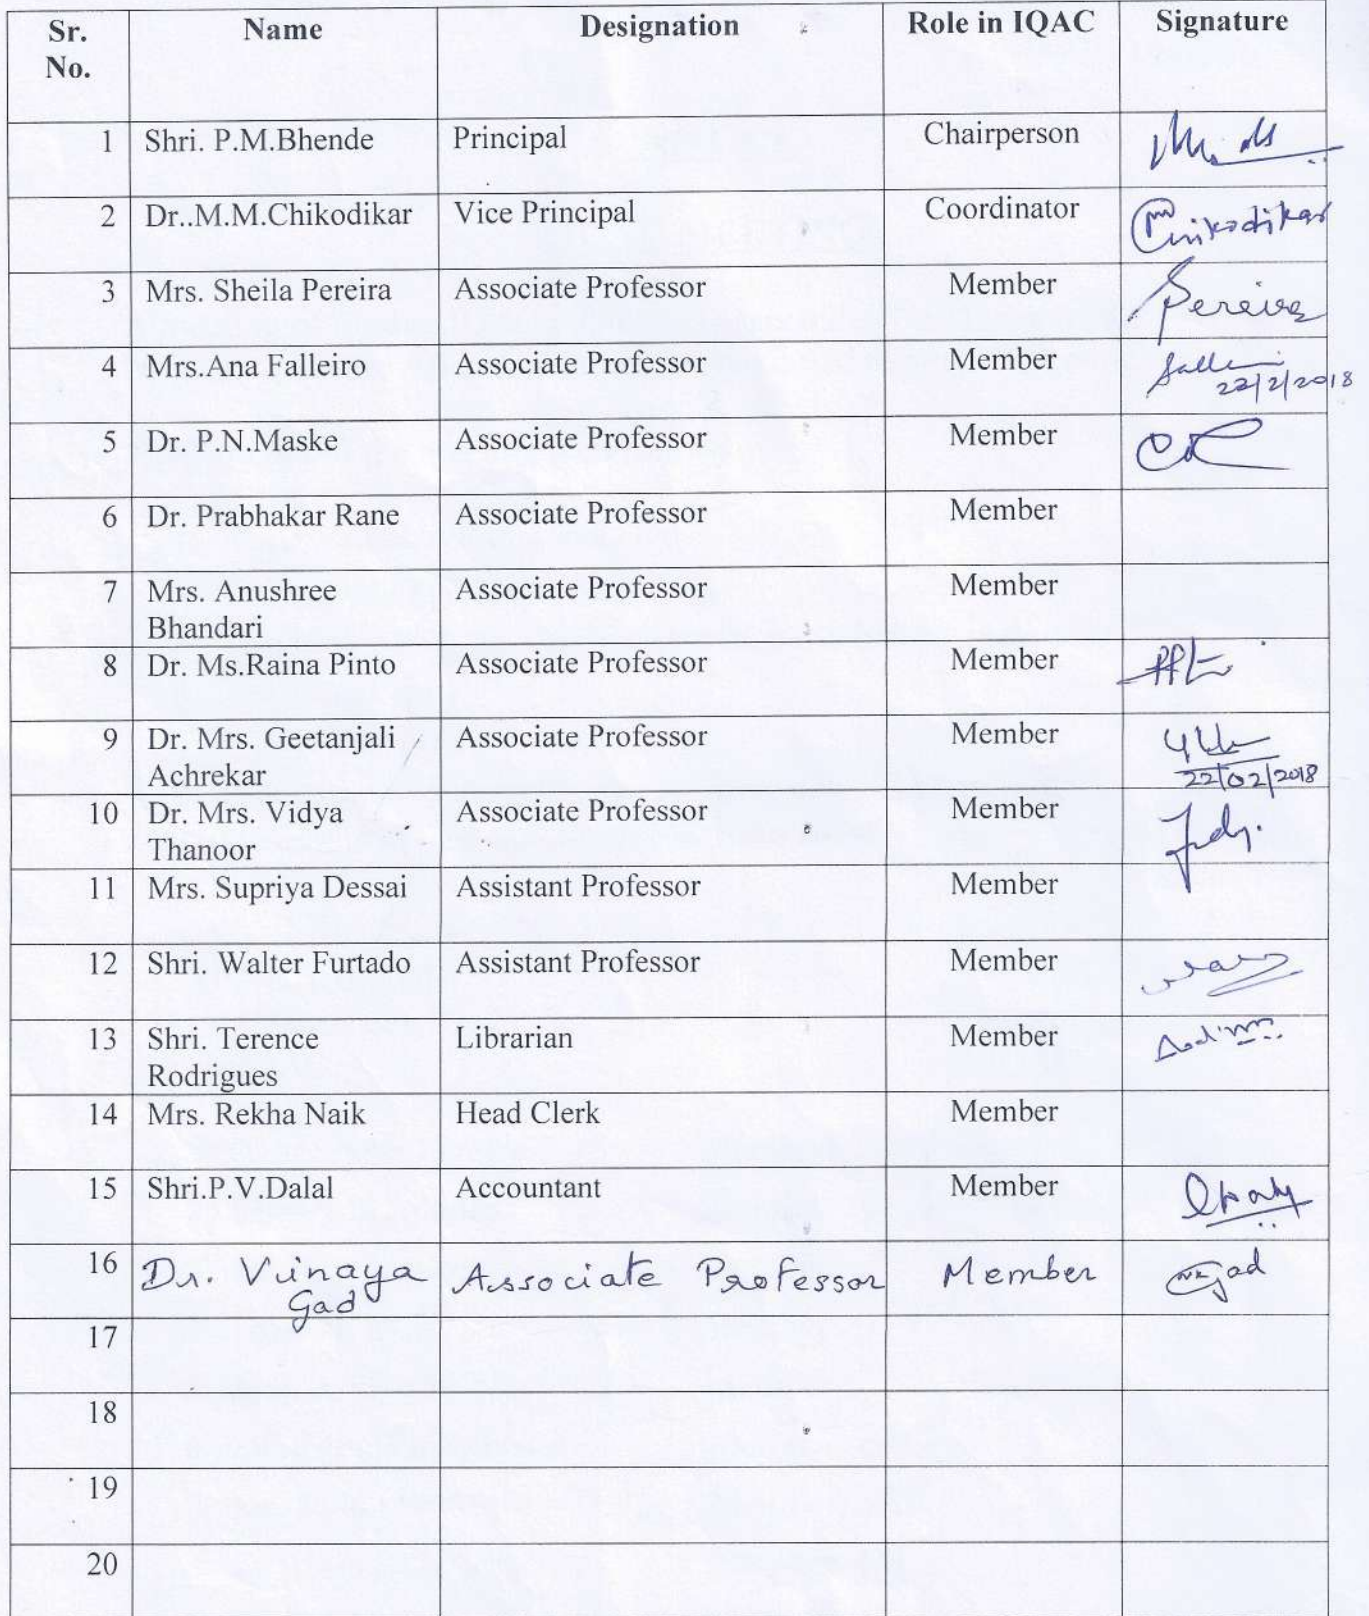 Sr. No. Name Designation Role in IQAC Signature
1 Shri. P.M.Bhende Principal Chairperson
2 Dr..M.M.Chikodikar Vice Principal Coordinator Chikodikar
3 Mrs. Sheila Pereira Associate Professor Member Pereira
4 Mrs.Ana Falleiro Associate Professor Member
22/2/2018
5 Dr. P.N.Maske Associate Professor Member
6 Dr. Prabhakar Rane Associate Professor Member
7 Mrs. Anushree Associate Professor Member
Bhandari
8 Dr. Ms.Raina Pinto Associate Professor Member
9 Dr. Mrs. Geetanjali Associate Professor Member
Achrekar 22/02/2018
10 Dr. Mrs. Vidya Associate Professor Member
Thanoor
11 Mrs. Supriya Dessai Assistant Professor Member
12 Shri. Walter Furtado Assistant Professor Member
13 Shri. Terence Librarian Member
Rodrigues
14 Mrs. Rekha Naik Head Clerk Member
15 Shri.P.V.Dalal Accountant Member
16 Dr. Vinaya Associate Professor Member Gad
Gad
17
18
19
20